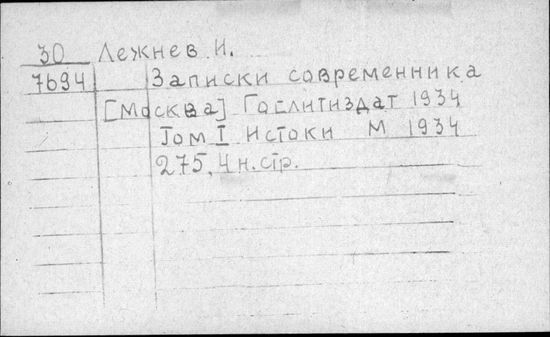 30 Лежнев И.
7694 Записки современника
[Москва] Гослитиздат 1934
Том I Истоки М 1934
275, 4 н. стр.